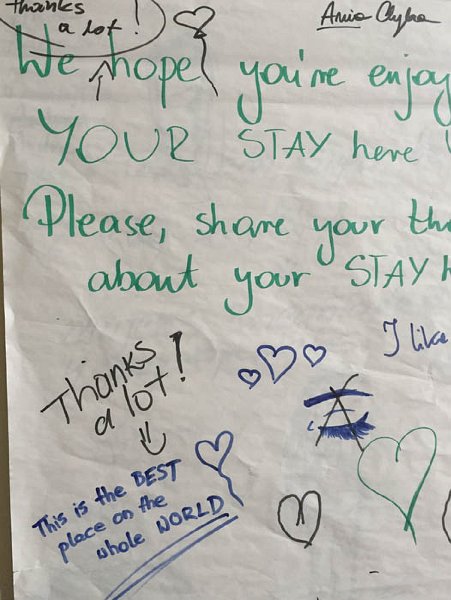 thanks
a lot!
We hope you're enjoy
YOUR STAY here
Please, share your th
about your STAY h
I like
Thanks
a lot!
This is the BEST
place on the
whole WORLD